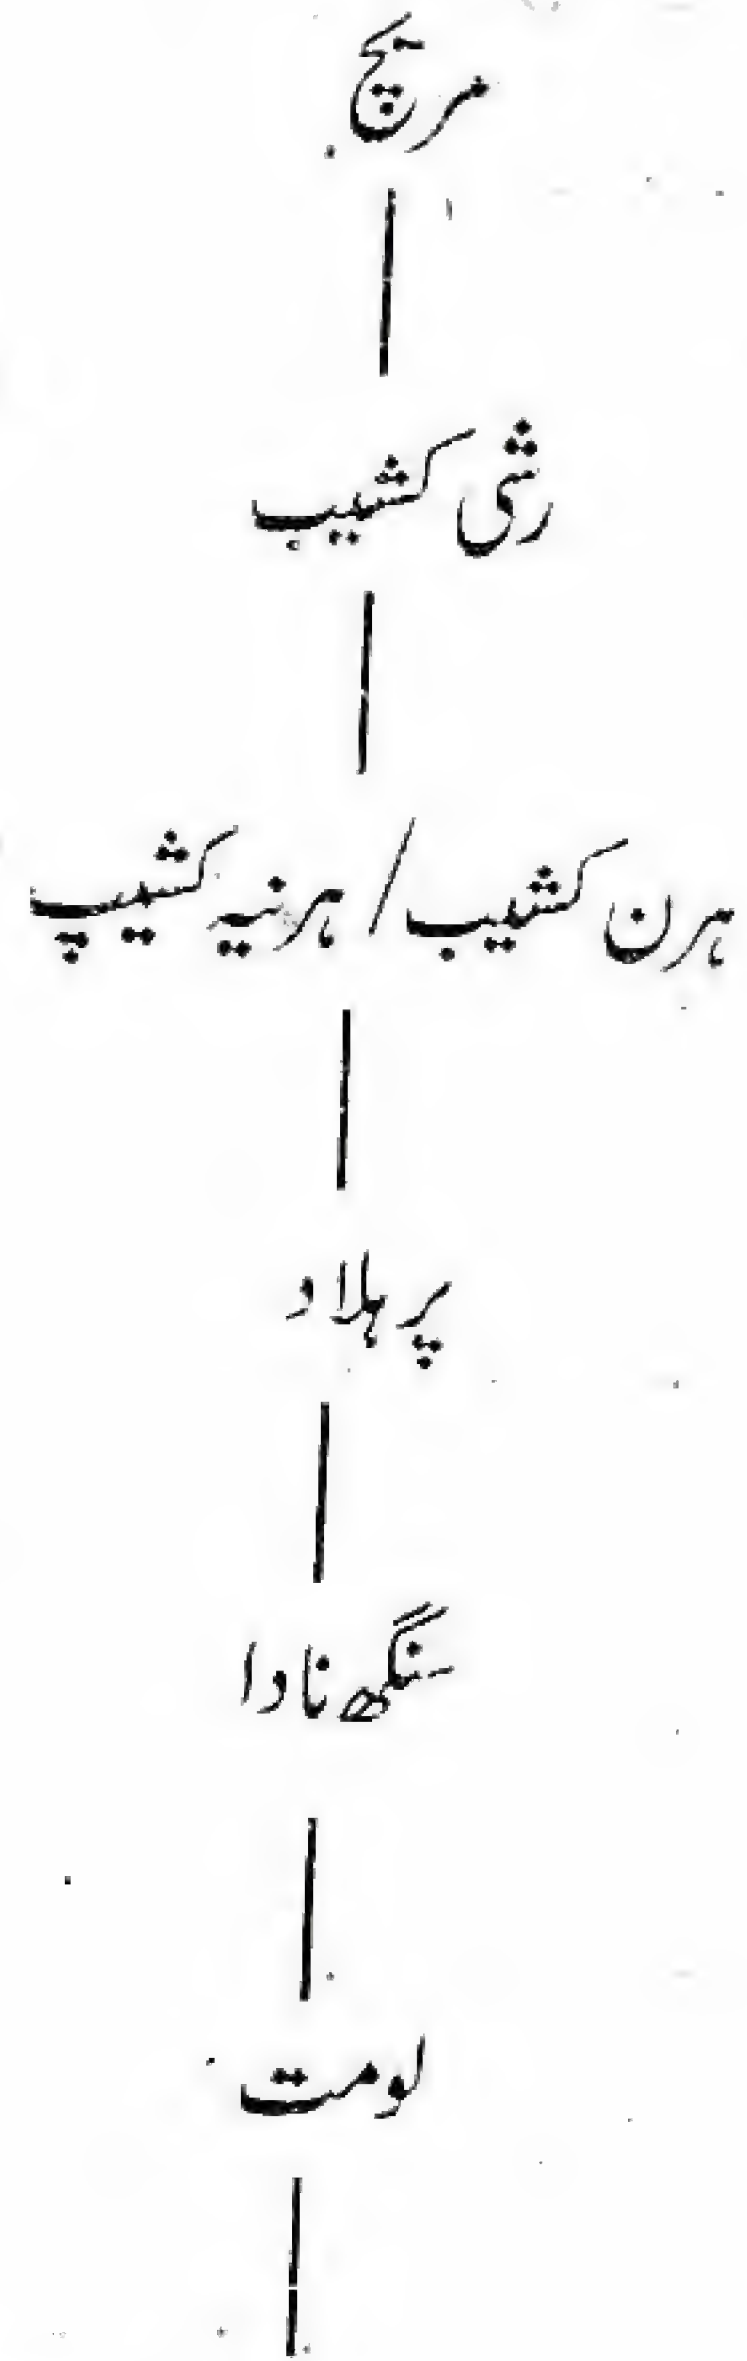 مریچ
رشی کشیب
ہرن کشیب / ہرنیہ کشیپ
پرہلاد
سنگھ نادا
لومت